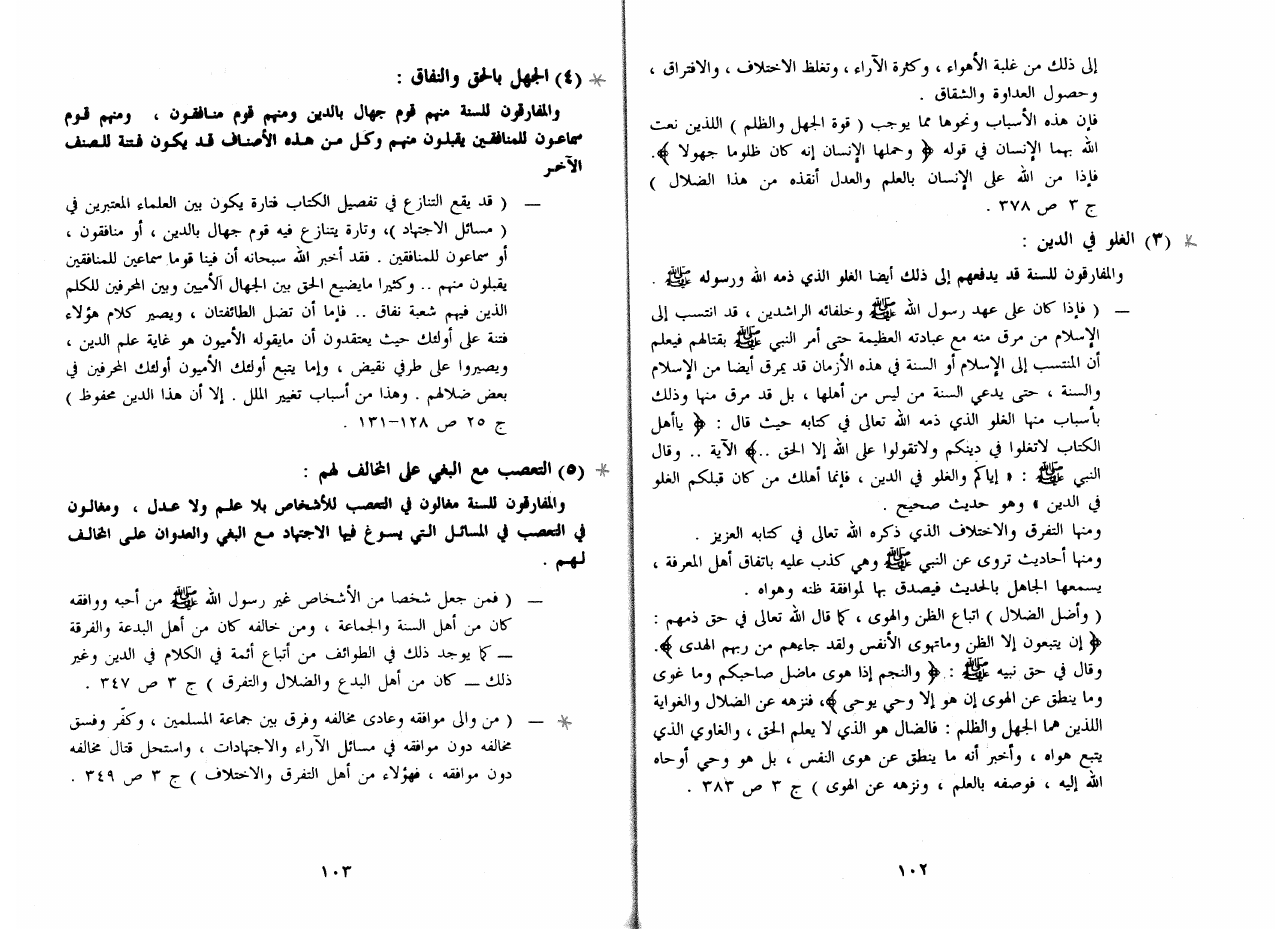 إلى ذلك من غلبة الأهواء ، وكثرة الآراء ، وتغلظ الاختلاف ، والافتراق ،
وحصول العداوة والشقاق .
فإن هذه الأسباب ونحوها مما يوجب ( قوة الجهل والظلم ) اللذين نعت
الله بهما الإنسان في قوله ﴿ وحملها الإنسان إنه كان ظلوما جهولا ﴾.
فإذا من الله على الإنسان بالعلم والعدل أنقذه من هذا الضلال )
ج ٣ ص ٣٧٨ .
* (٣) الغلو في الدين :
والمفارقون للسنة قد يدفعهم إلى ذلك أيضا الغلو الذي ذمه الله ورسوله ﷺ .
— ( فإذا كان على عهد رسول الله ﷺ وخلفائه الراشدين ، قد انتسب إلى
الإسلام من مرق منه مع عبادته العظيمة حتى أمر النبي ﷺ بقتالهم فيعلم
أن المنتسب إلى الإسلام أو السنة في هذه الأزمان قد يمرق أيضا من الإسلام
والسنة ، حتى يدعي السنة من ليس من أهلها ، بل قد مرق منها وذلك
بأسباب منها الغلو الذي ذمه الله تعالى في كتابه حيث قال : ﴿ ياأهل
الكتاب لاتغلوا في دينكم ولاتقولوا على الله إلا الحق ..﴾ الآية .. وقال
النبي ﷺ : « إياكم والغلو في الدين ، فإنما أهلك من كان قبلكم الغلو
في الدين » وهو حديث صحيح .
ومنها التفرق والاختلاف الذي ذكره الله تعالى في كتابه العزيز .
ومنها أحاديث تروى عن النبي ﷺ وهي كذب عليه باتفاق أهل المعرفة ،
يسمعها الجاهل بالحديث فيصدق بها لموافقة ظنه وهواه .
( وأضل الضلال ) اتباع الظن والهوى ، كما قال الله تعالى في حق ذمهم :
﴿ إن يتبعون إلا الظن وماتهوى الأنفس ولقد جاءهم من ربهم الهدى ﴾.
وقال في حق نبيه ﷺ : ﴿ والنجم إذا هوى ماضل صاحبكم وما غوى
وما ينطق عن الهوى إن هو إلا وحي يوحى ﴾، فنزهه عن الضلال والغواية
اللذين هما الجهل والظلم : فالضال هو الذي لا يعلم الحق ، والغاوي الذي
يتبع هواه ، وأخبر أنه ما ينطق عن هوى النفس ، بل هو وحي أوحاه
الله إليه ، فوصفه بالعلم ، ونزهه عن الهوى ) ج ٣ ص ٣٨٣ .
١٠٢
* (٤) الجهل بالحق والنفاق :
والمفارقون للسنة منهم قوم جهال بالدين ومنهم قوم منافقون ، ومنهم قوم
سماعون للمنافقين يقبلون منهم وكل من هذه الأصناف قد يكون فتنة للصنف
الآخر
— ( قد يقع التنازع في تفصيل الكتاب فتارة يكون بين العلماء المعتبرين في
( مسائل الاجتهاد )، وتارة يتنازع فيه قوم جهال بالدين ، أو منافقون ،
أو سماعون للمنافقين . فقد أخبر الله سبحانه أن فينا قوما سماعين للمنافقين
يقبلون منهم .. وكثيرا مايضيع الحق بين الجهال الأميين وبين المحرفين للكلم
الذين فيهم شعبة نفاق .. فإما أن تضل الطائفتان ، ويصير كلام هؤلاء
فتنة على أولئك حيث يعتقدون أن مايقوله الأميون هو غاية علم الدين ،
ويصيروا على طرفي نقيض ، وإما يتبع أولئك الأميون أولئك المحرفين في
بعض ضلالهم . وهذا من أسباب تغيير الملل . إلا أن هذا الدين محفوظ )
ج ٢٥ ص ١٢٨–١٣١ .
* (٥) التعصب مع البغي على المخالف لهم :
والمفارقون للسنة مغالون في التعصب للأشخاص بلا علم ولا عدل ، ومغالون
في التعصب في المسائل التي يسوغ فيها الاجتهاد مع البغي والعدوان على المخالف
لهم .
— ( فمن جعل شخصا من الأشخاص غير رسول الله ﷺ من أحبه ووافقه
كان من أهل السنة والجماعة ، ومن خالفه كان من أهل البدعة والفرقة
— كما يوجد ذلك في الطوائف من أتباع أئمة في الكلام في الدين وغير
ذلك — كان من أهل البدع والضلال والتفرق ) ج ٣ ص ٣٤٧ .
* — ( من والى موافقه وعادى مخالفه وفرق بين جماعة المسلمين ، وكفّر وفسق
مخالفه دون موافقه في مسائل الآراء والاجتهادات ، واستحل قتال مخالفه
دون موافقه ، فهؤلاء من أهل التفرق والاختلاف ) ج ٣ ص ٣٤٩ .
١٠٣